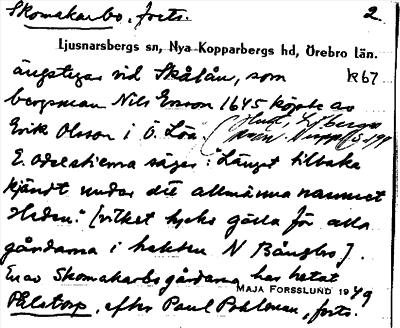 Skomakarbo, forts. 2.
Ljusnarsbergs sn, Nya Kopparbergs hd, Örebro län.
ängstegar vid Skålån, som K67
bergsman Nils Ersson 1645 köpte av
Erik Olsson i Ö. Löa. (
E. Odelstierna säger: "Längst tillbaka
kjändt under det allmänna namnet
Heden." [vilket tycks gälla för alla
gårdarna i hekken N Bångbro].
En av Skomakarbo gårdarna har hetat
MAJA FORSSLUND 1949
Pålstorp, efter Paul Pohlman, forts.